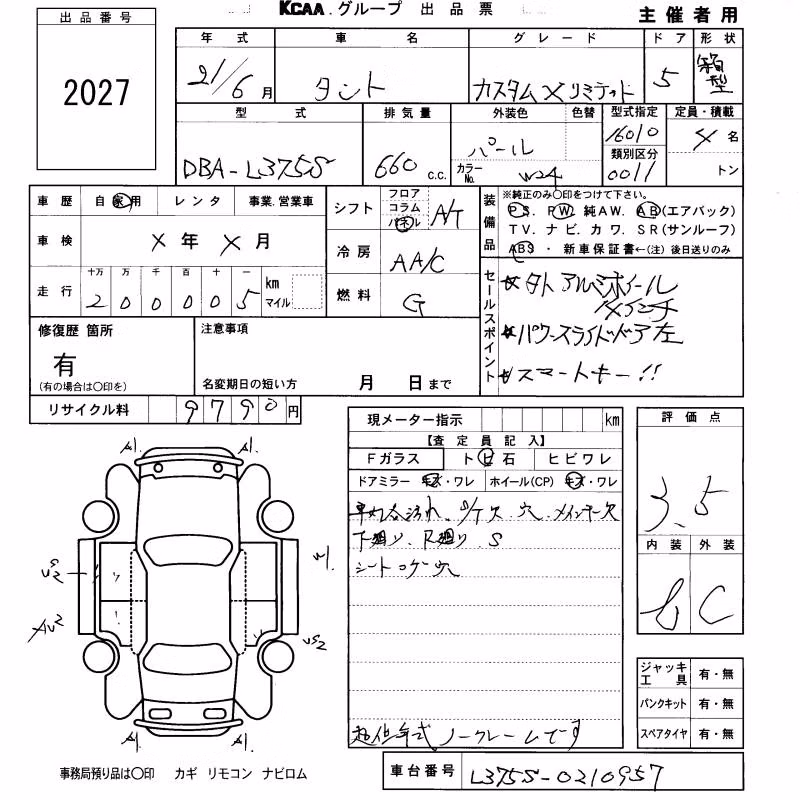 KCAA.グループ 出品票
主催者用
出品番号
2027
年式 車名 グレード ドア 形状
21/6月 タント カスタムXリミテッド 5 箱型
型式 排気量 外装色 色替 型式指定 定員・積載
DBA-L375S 660 c.c. パール 16010 4名
カラーNo. W24 類別区分 0011 トン
車歴 自家用 レンタ 事業.営業車
シフト フロア コラム パネル A/T
装備品 ※純正のみ〇印をつけて下さい。
PS. PW. 純AW. AB(エアバック)
TV. ナビ. カワ. SR(サンルーフ)
ABS ・新車保証書←(注)後日送りのみ
車検 X年 X月
冷房 AA/C
走行 十万 万 千 百 十 一 km マイル
2 0 0 0 0 5
燃料 G
セールスポイント
☆社外アルミホイール
14インチ
☆パワースライドドア左
☆スマートキー!!
修復歴 箇所
有
(有の場合は〇印を)
注意事項
名変期日の短い方 月 日まで
リサイクル料 9790円
現メーター指示 km
【査定員記入】
Fガラス トビ石 ヒビワレ
ドアミラー キズ・ワレ ホイール(CP) キズ・ワレ
車内汚れ. S/T欠 穴. メインキー欠
下廻り. R廻り. S
シートコゲ穴
評価点
3.5
内装 外装
C
A1. A1.
US2 W1.
AU2 US2
A1. A1.
ジャッキ工具 有・無
パンクキット 有・無
スペアタイヤ 有・無
ノークレームです
事務局預り品は〇印 カギ リモコン ナビロム
車台番号 L375S-0210957